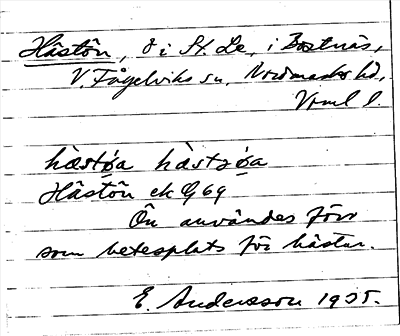 Hästön, ö i St. Le, i Bastnäs,
V. Fågelviks sn, Nordmarks hd,
Vrml l.
hästø̱a hàstsø̱a
Hästön ek G 69
Ön användes förr
som betesplats för hästar.
E. Andersson 1935.